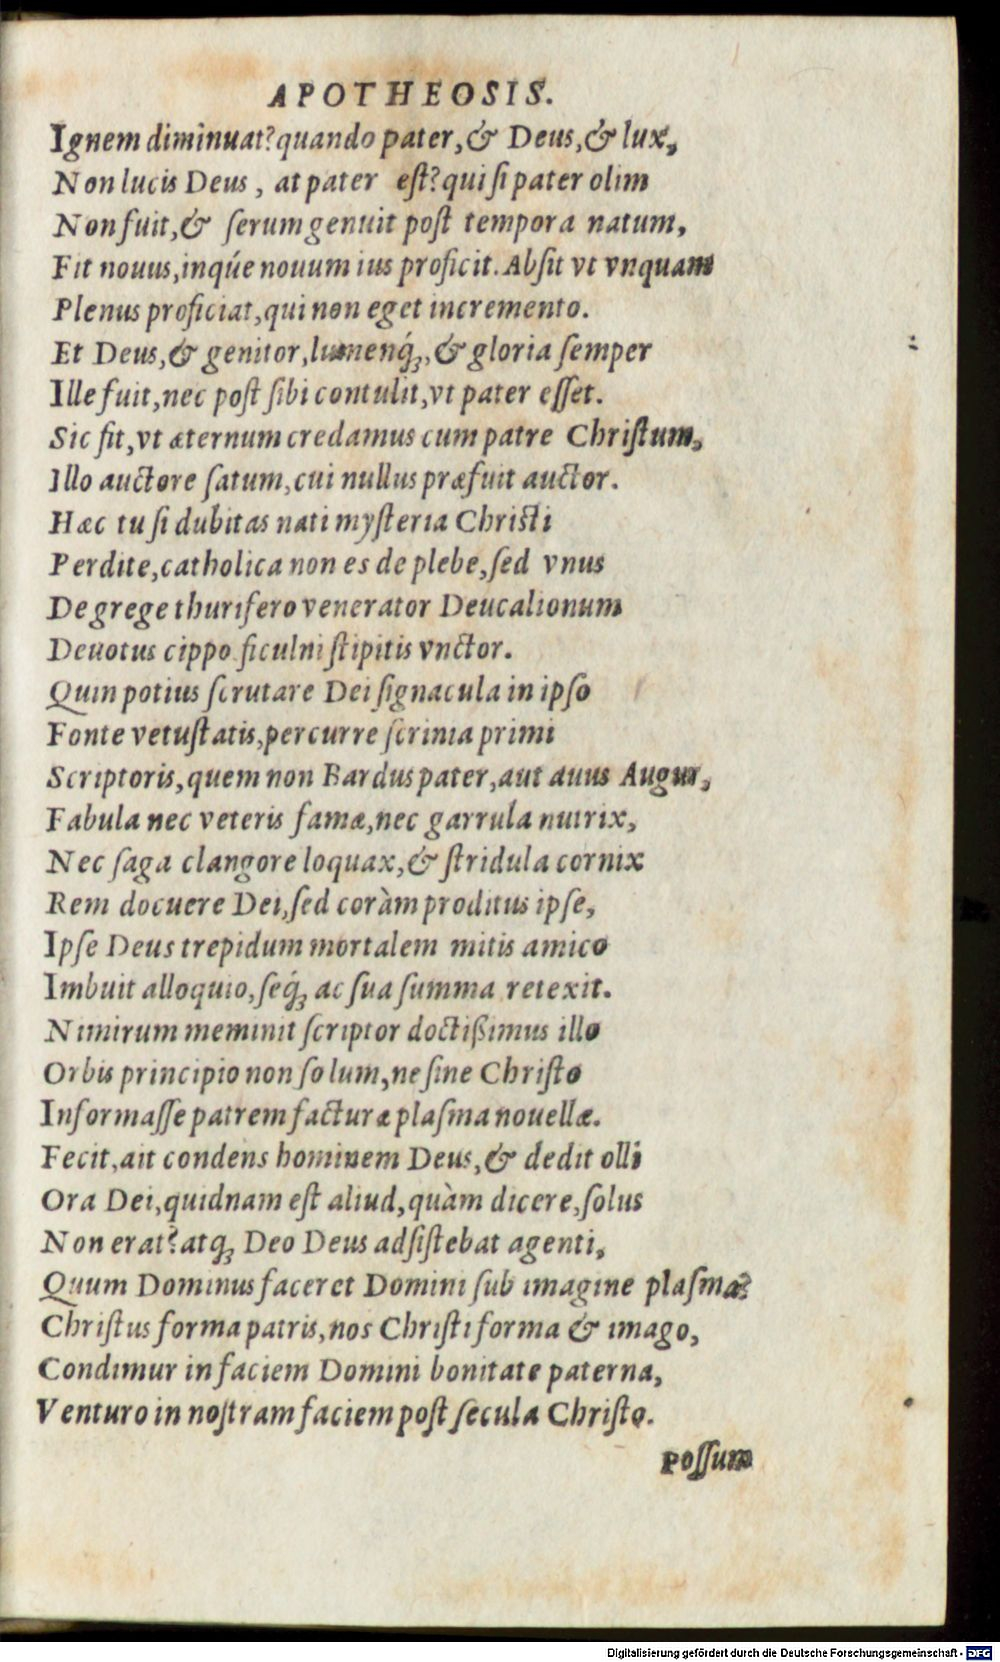 APOTHEOSIS.
Ignem diminuat? quando pater, & Deus, & lux,
Non lucis Deus, at pater est? qui si pater olim
Non fuit, & serum genuit post tempora natum,
Fit nouus, inqúe nouum ius proficit. Absit vt vnquam
Plenus proficiat, qui non eget incremento.
Et Deus, & genitor, lumenq́;, & gloria semper
Ille fuit, nec post sibi contulit, vt pater esset.
Sic fit, vt æternum credamus cum patre Christum,
Illo auctore satum, cui nullus præfuit auctor.
Hæc tu si dubitas nati mysteria Christi
Perdite, catholica non es de plebe, sed vnus
De grege thurifero venerator Deucalionum
Deuotus cippo ficulni stipitis vnctor.
Quin potius scrutare Dei signacula in ipso
Fonte vetustatis, percurre scrinia primi
Scriptoris, quem non Bardus pater, aut auus Augur,
Fabula nec veteris famæ, nec garrula nutrix,
Nec saga clangore loquax, & stridula cornix
Rem docuere Dei, sed coràm proditus ipse,
Ipse Deus trepidum mortalem mitis amico
Imbuit alloquio, seq́; ac sua summa retexit.
Nimirum meminit scriptor doctißimus illo
Orbis principio non solum, ne sine Christo
Informasse patrem facturæ plasma nouellæ.
Fecit, ait condens hominem Deus, & dedit olli
Ora Dei, quidnam est aliud, quàm dicere, solus
Non erat? atq; Deo Deus adsistebat agenti,
Quum Dominus faceret Domini sub imagine plasma?
Christus forma patris, nos Christi forma & imago,
Condimur in faciem Domini bonitate paterna,
Venturo in nostram faciem post secula Christo.
Possum
Digitalisierung gefördert durch die Deutsche Forschungsgemeinschaft - DFG